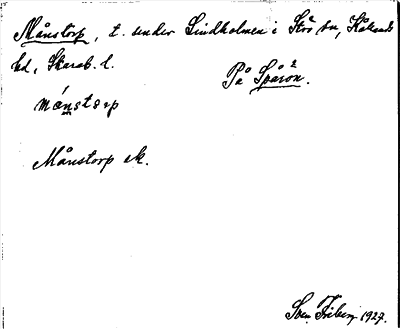 Månstorp, t. under Lindholmen i Strö sn, Kållands
hd, Skarab. l.
På Spåron.
månstorp
Månstorp ek.
Sven Friberg 1927.